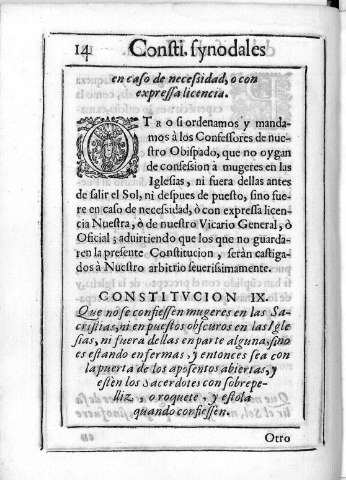 14 Consti. synodales
en caso de necessidad, o con
expressa licencia.
OTro si ordenamos y manda-
mos à los Confessores de nue-
stro Obispado, que no oygan
de confession à mugeres en las
Iglesias, ni fuera dellas antes
de salir el Sol, ni despues de puesto, sino fue-
re en caso de necessidad, ò con expressa licen-
cia Nuestra, ò de nuestro Vicario General, ò
Oficial; aduirtiendo que los que no guarda-
ren la presente Constitucion, seràn castiga-
dos à Nuestro arbitrio seuerissimamente.
CONSTITVCION IX.
Que no se confiessen mugeres en las Sa-
cristias, ni en puestos obscuros en las Igle
sias, ni fuera dellas en parte alguna, sino
es estando enfermas, y entonces sea con
la puerta de los aposentos abiertas, y
estèn los Sacerdotes con sobrepe-
lliz, o roquete, y estola
quando confiessen.
Otro